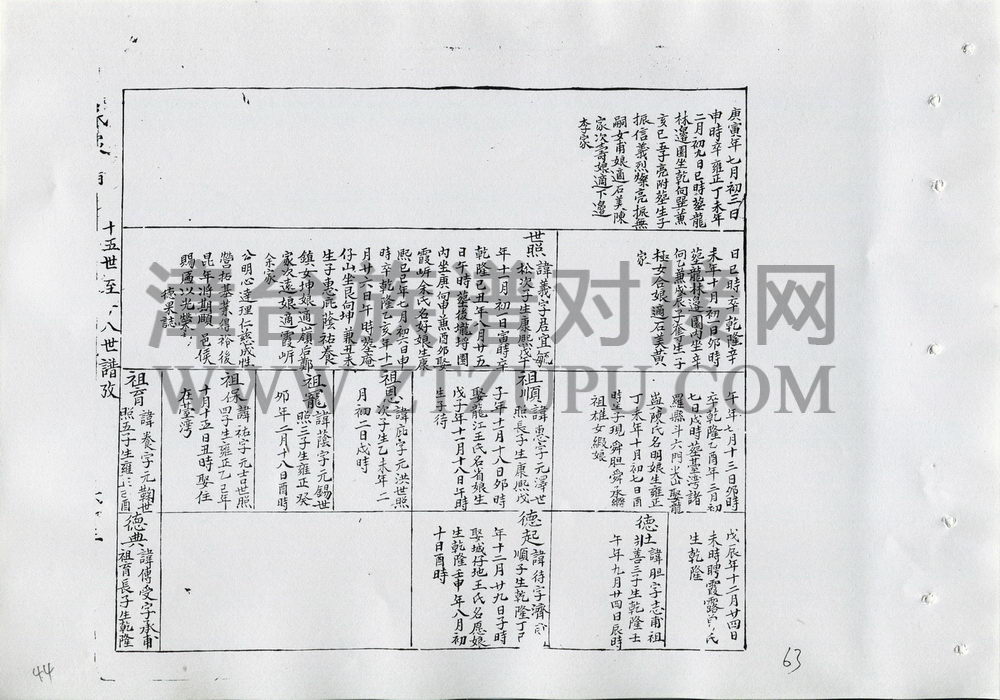 庚寅年七月初三日
申時卒雍正丁未年
二月初九日巳時塟龍
林邊園坐乾向巽兼
亥巳吾子亮附塟生子
振信義烈燦亮振無
嗣女甫娘適石美陳
家次壽娘適下邊
李家
日巳時卒乾隆辛
未年十月初一日卯時
塟龍林邊園內坐辛
向乙兼戌辰子養生子
極女合娘適石美黃
家
世照諱義字君宜毓
松次子生康熙戊午
年十一月初一日寅時卒
乾隆己丑年八月十五
日午時塟後壠埒園
內坐庚向甲兼酉卯娶
霞㟁余氏名好娘生康
熙己巳年七月初六日申
時卒乾隆乙亥年十一
月廿六日午時塟庵
仔山坐艮向坤兼丑未
生子惠庇蔭祐養
鎮女坤娘適嶺后鄭
家次遠娘適霞㟁
余家
公明心達理仁慈成性
營拓基業得裕後
昆年將期頤邑侯
賜匾以光榮
德果誌
午年七月十三日卯時
卒乾隆乙酉年三月初
七日戌時塟臺灣諸
羅縣斗六門尖山娶龍
㵎陳氏名明娘生雍正
丁未年十月初七日酉
時生子現舜胆舜承繼
祖雄女緞娘
祖順諱惠字元澤世
照長子生康熙戊
子年十一月十八日卯時
娶龍江王氏名省娘生
戊子年十二月十八日午時
生子待
祖恩諱庇字元洪世照
次子生乙未年二
月初二日戌時
祖寵諱蔭字元錫世
照三子生雍正癸
卯年二月十八日酉時
祖保諱祐字元吉世照
四子生雍正乙巳年
十月十五日丑時娶住
在臺灣
祖育諱養字元鞠世
照五子生雍正己酉
戊辰年十二月廿四日
未時聘霞露曾氏
生乾隆
德性諱胆字志甫祖
善三子生乾隆壬
午年九月廿四日辰時
德起諱待字濟
順子生乾隆丁巳
年十二月廿九日子時
娶城仔地王氏名愿娘
生乾隆壬申年八月初
十日酉時
德典諱傳受字承甫
祖育長子生乾隆
十五世至十八世譜攷
63
44
WWW.ZTZUPU.COM